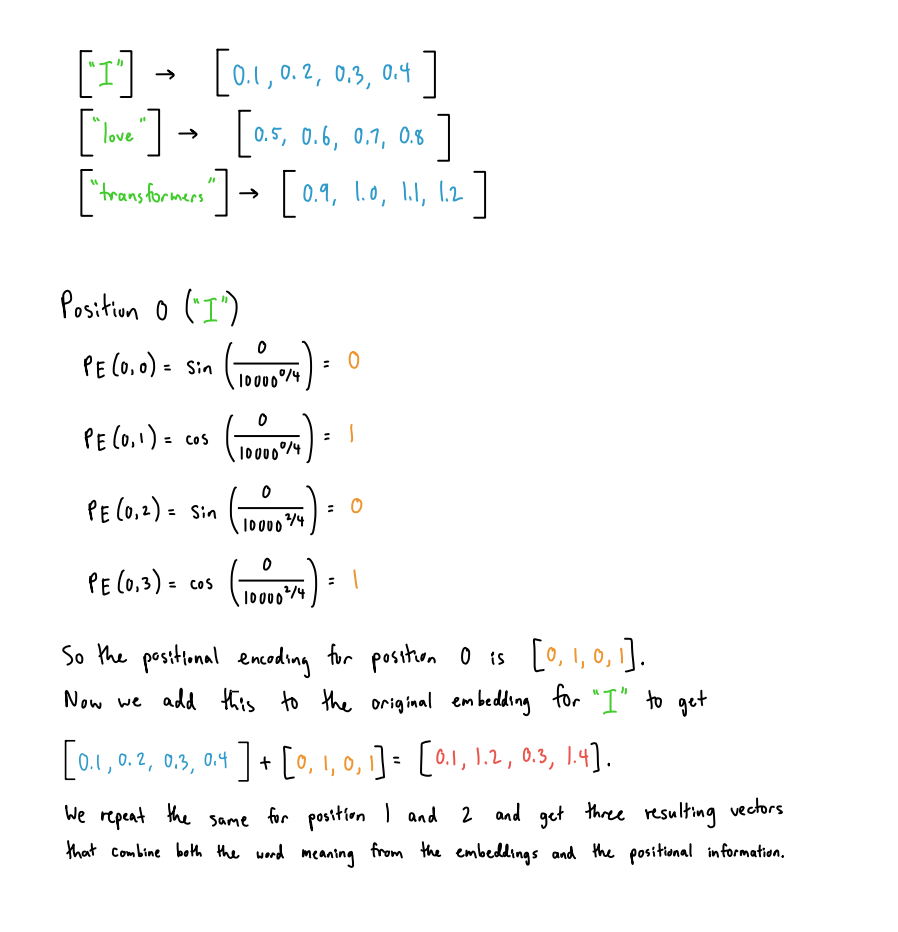 ["I"] → [0.1, 0.2, 0.3, 0.4]
["love"] → [0.5, 0.6, 0.7, 0.8]
["transformers"] → [0.9, 1.0, 1.1, 1.2]
Position 0 ("I")
PE(0,0) = sin(0/10000^0/4) = 0
PE(0,1) = cos(0/10000^0/4) = 1
PE(0,2) = sin(0/10000^2/4) = 0
PE(0,3) = cos(0/10000^2/4) = 1
So the positional encoding for position 0 is [0, 1, 0, 1].
Now we add this to the original embedding for "I" to get
[0.1, 0.2, 0.3, 0.4] + [0, 1, 0, 1] = [0.1, 1.2, 0.3, 1.4].
We repeat the same for position 1 and 2 and get three resulting vectors
that combine both the word meaning from the embeddings and the positional information.